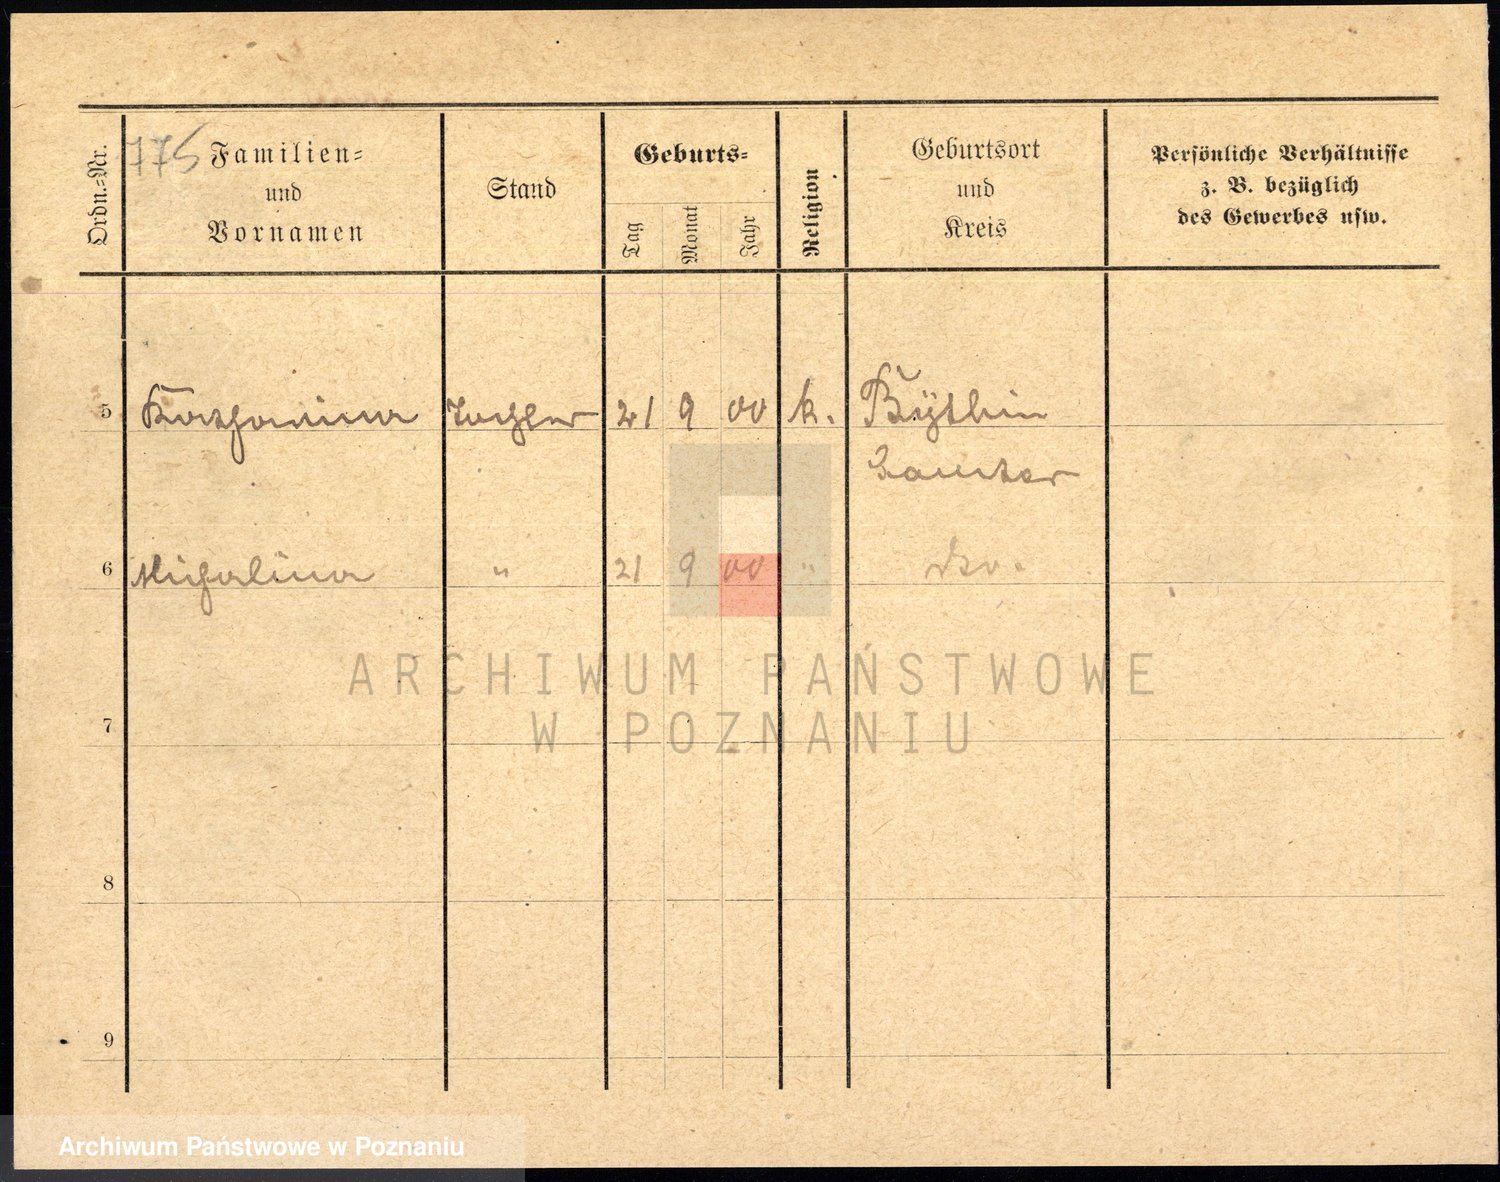 775
Ordn.-Nr.
Familien-
und
Vornamen
Stand
Geburts-
Tag
Monat
Jahr
Religion
Geburtsort
und
Kreis
Persönliche Verhältnisse
z. B. bezüglich
des Gewerbes usw.
5 Katharina Tochter 21 9 00 k. Bythin
Samter
6 Michalina " 21 9 00 " dto.
7
8
9
ARCHIWUM PAŃSTWOWE
W POZNANIU
Archiwum Państwowe w Poznaniu